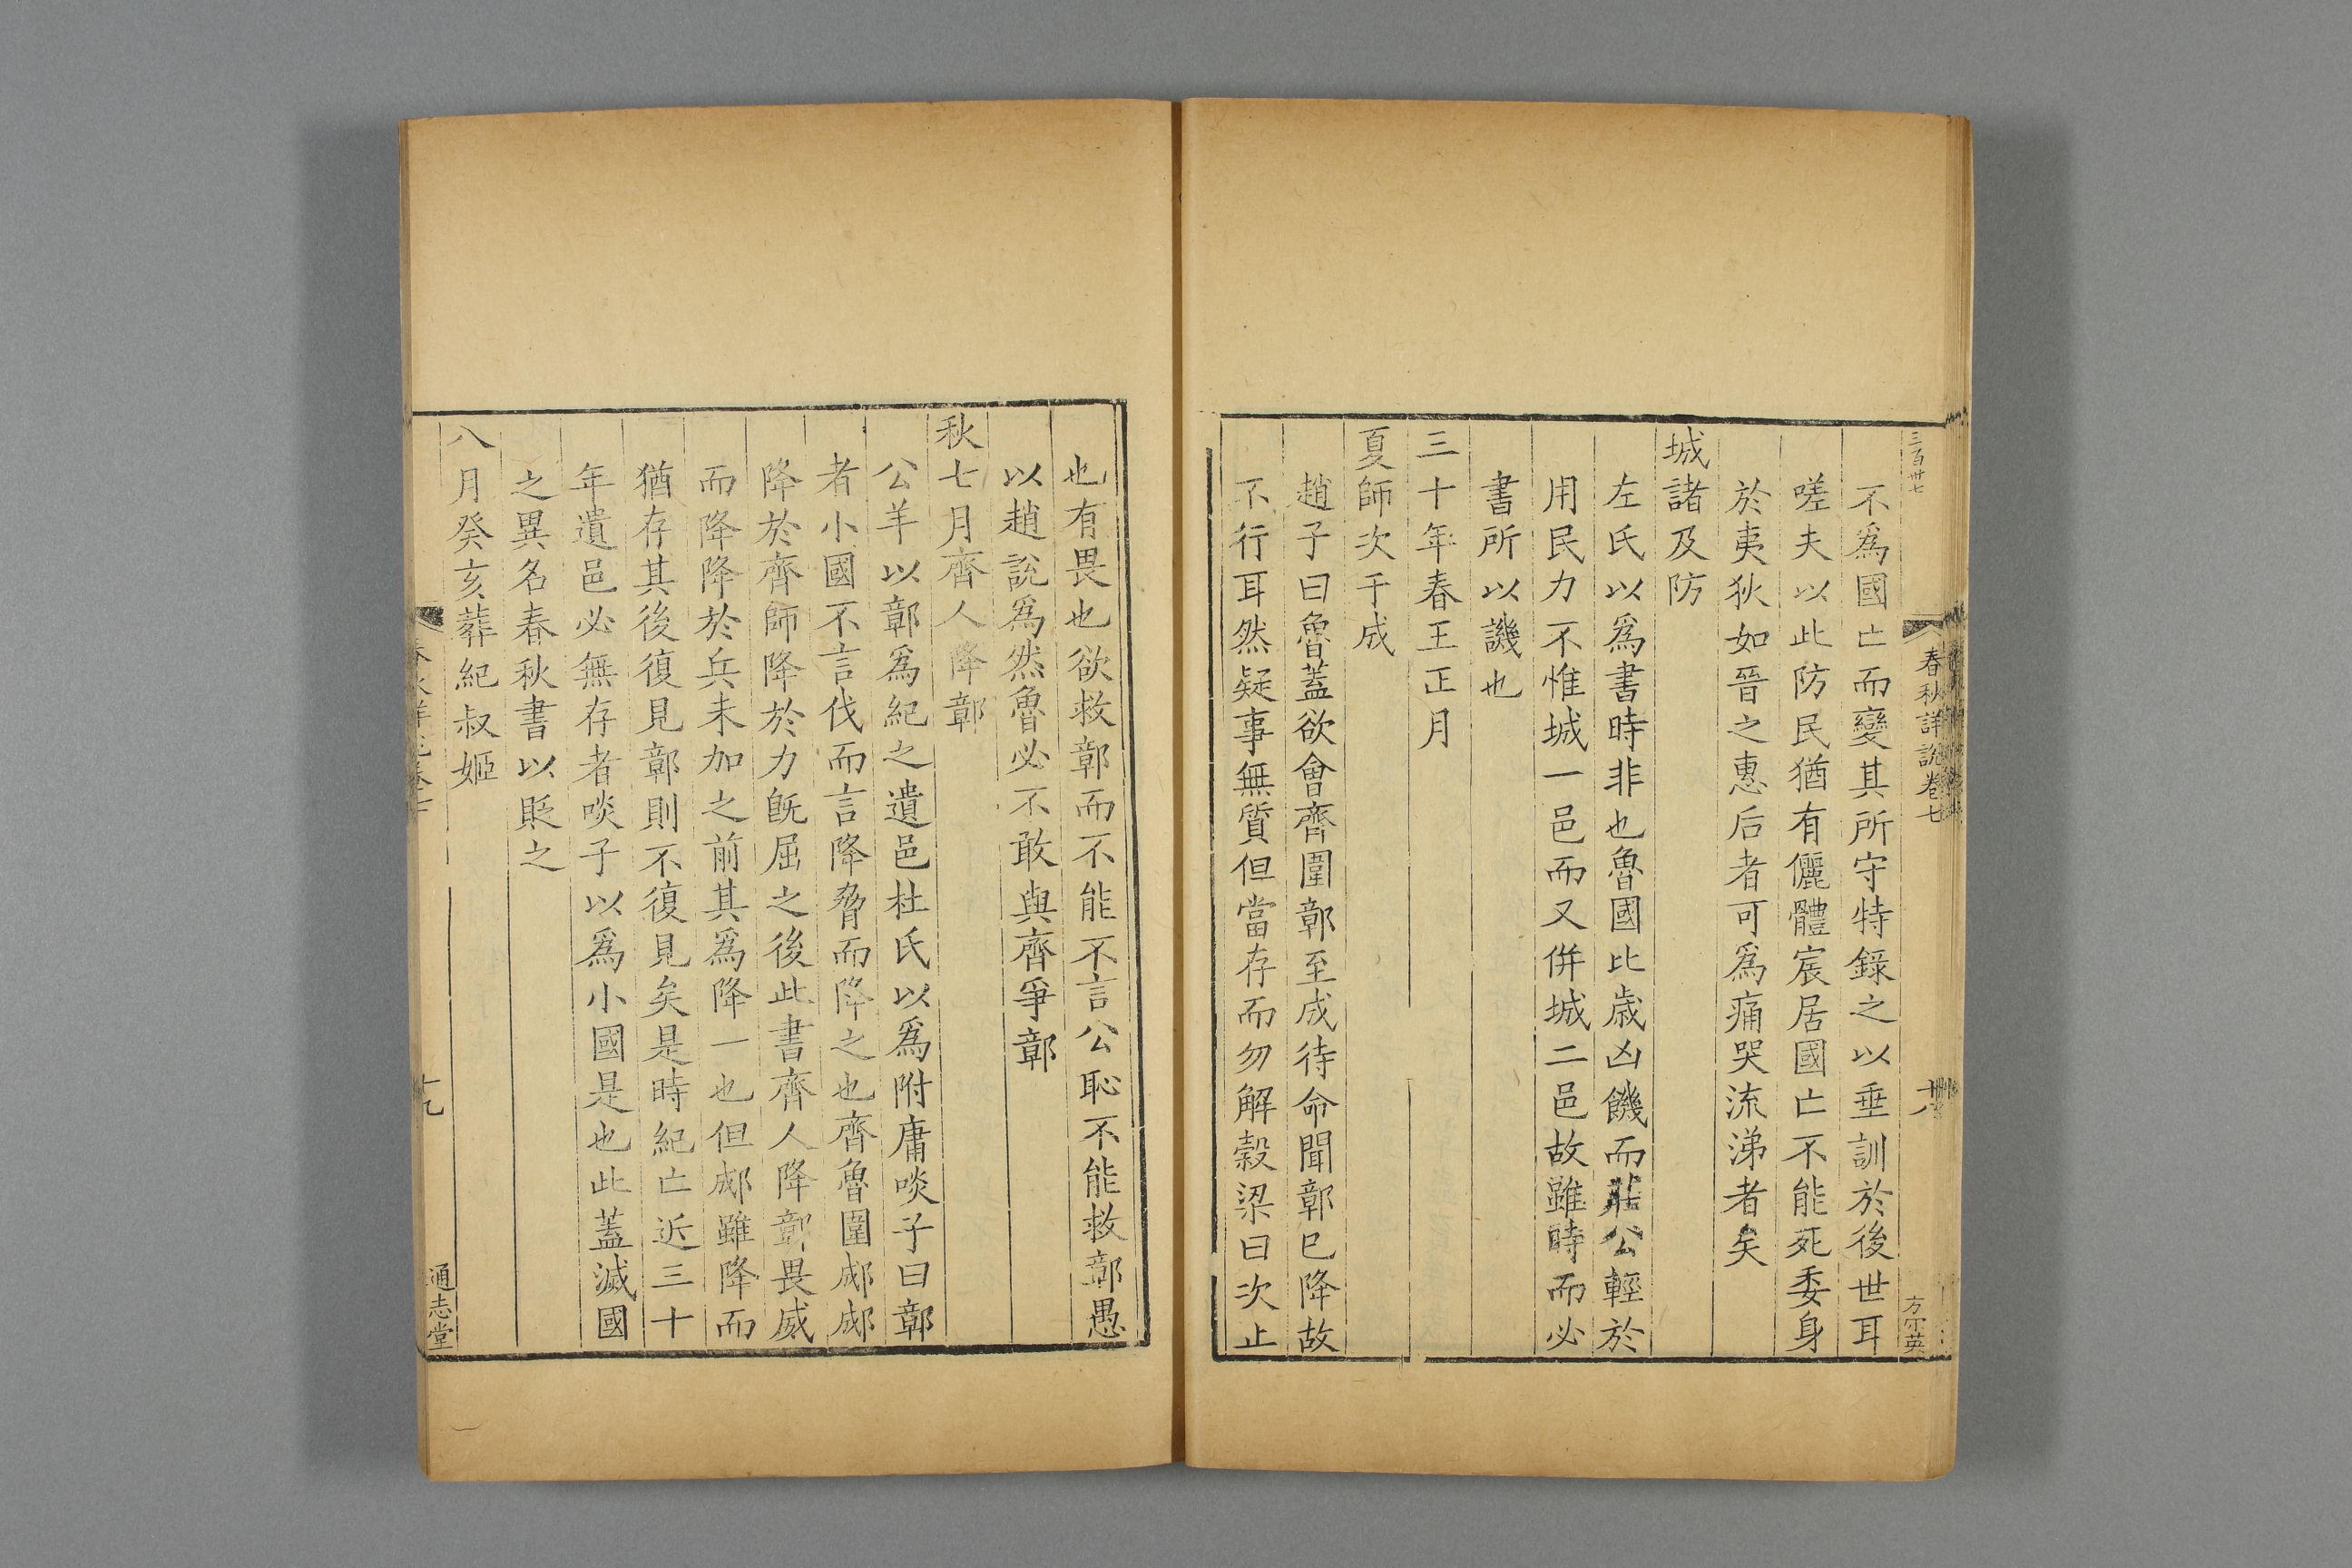 三百卅七
春秋詳說卷七
十八
方宗英
不爲國亡而變其所守特錄之以垂訓於後世耳
嗟夫以此防民猶有儷體宸居國亡不能死委身
於夷狄如晉之惠后者可爲痛哭流涕者矣
城諸及防
左氏以爲書時非也魯國比歲凶饑而莊公輕於
用民力不惟城一邑而又併城二邑故雖時而必
書所以譏也
三十年春王正月
夏師次于成
趙子曰魯蓋欲會齊圍鄣至成待命聞鄣巳降故
不行耳然疑事無質但當存而勿解穀梁曰次止
也有畏也欲救鄣而不能不言公恥不能救鄣愚
以趙說爲然魯必不敢與齊爭鄣
秋七月齊人降鄣
公羊以鄣爲紀之遺邑杜氏以爲附庸啖子曰鄣
者小國不言伐而言降脅而降之也齊魯圍郕郕
降於齊師降於力旣屈之後此書齊人降鄣畏威
而降降於兵未加之前其爲降一也但郕雖降而
猶存其後復見鄣則不復見矣是時紀亡近三十
年遺邑必無存者啖子以爲小國是也此蓋滅國
之異名春秋書以貶之
八月癸亥葬紀叔姬
春秋詳說卷七
十九
通志堂